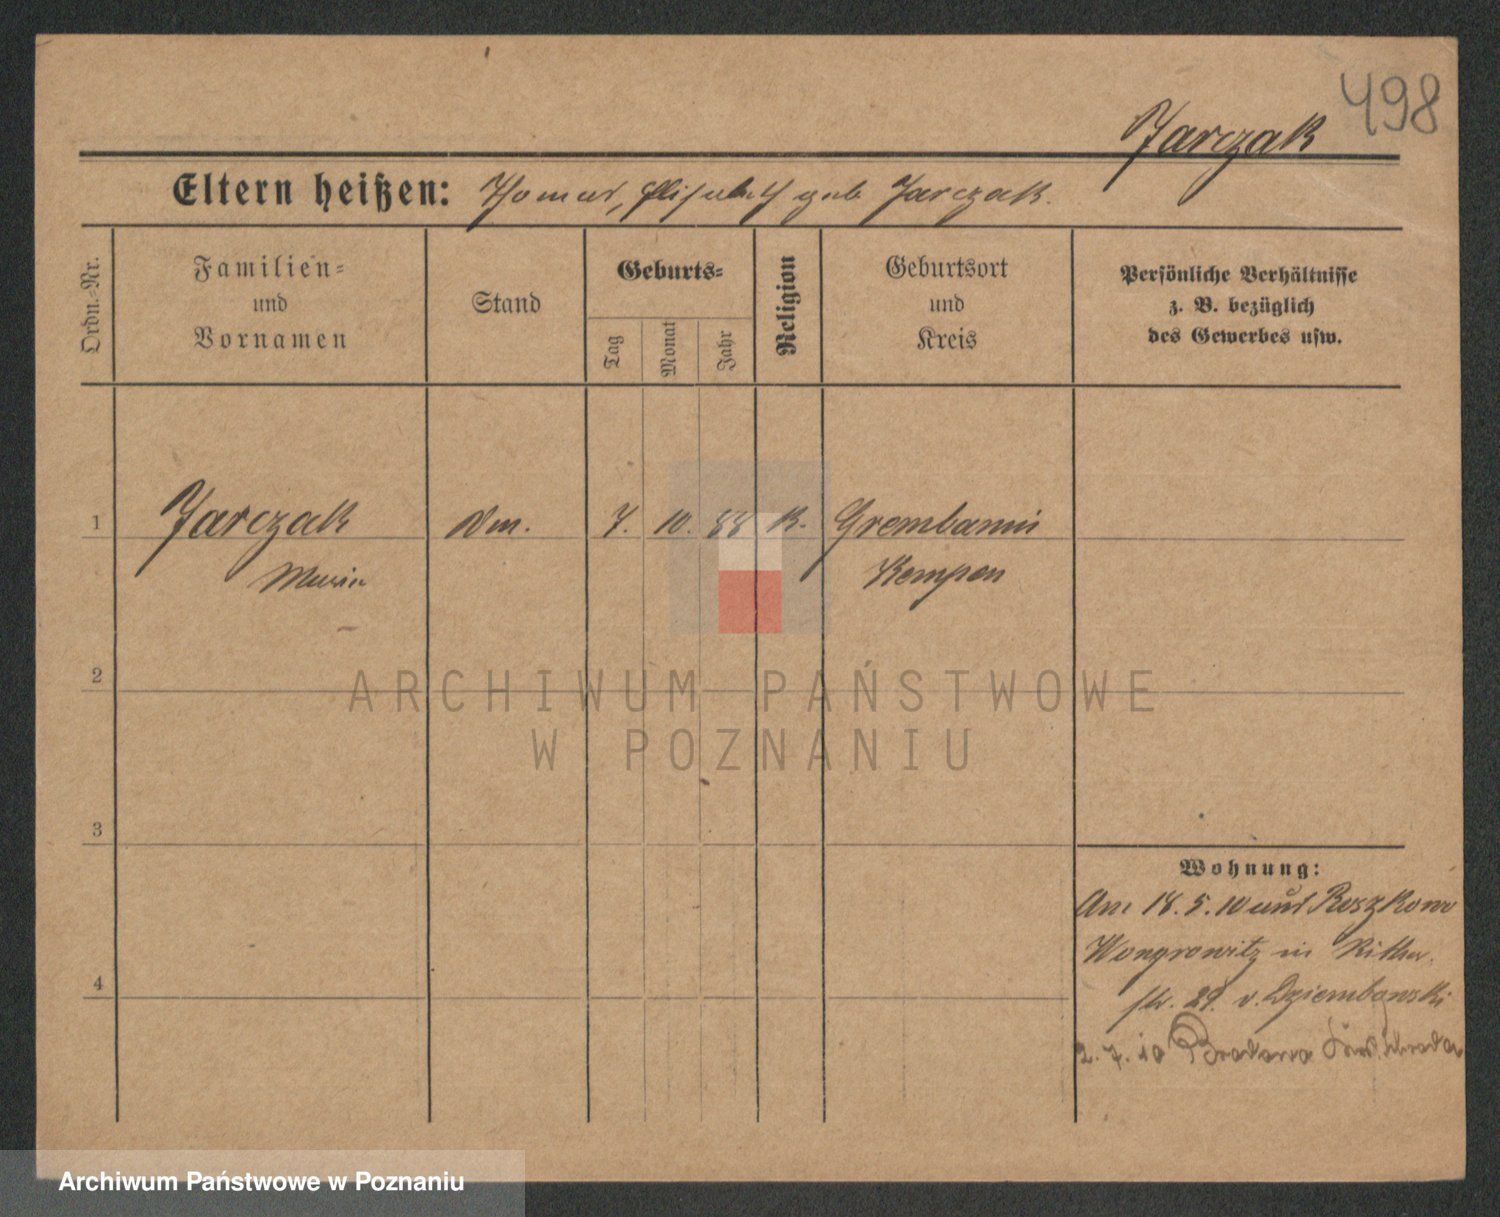 498
Jarczak
Eltern heißen: Thomas, Elisabeth geb Jarczak.
Ordn.-Nr.
Familien-
und
Vornamen
Stand
Geburts-
Tag
Monat
Jahr
Religion
Geburtsort
und
Kreis
Persönliche Verhältnisse
z. B. bezüglich
des Gewerbes usw.
1
Jarczak
Dm.
7. 10. 88
K.
Grembanin
Maria
Kempen
2
ARCHIWUM PAŃSTWOWE
W POZNANIU
3
4
Wohnung:
Am 18. 5. 10 aus Roszkowo
Wongrowitz in Ritter
str. 29. v. Dziembowski
2. 7. 10
Archiwum Państwowe w Poznaniu